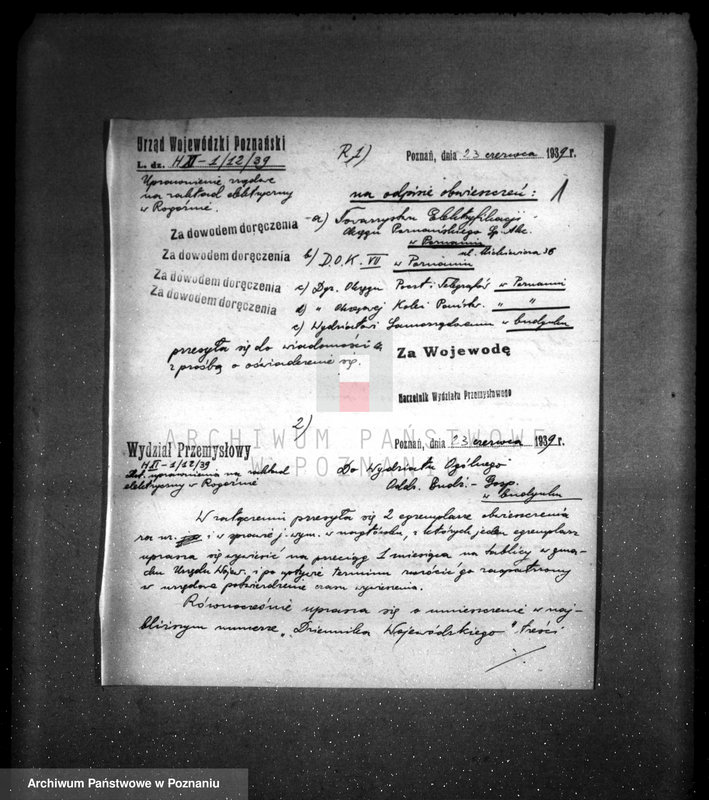 Urząd Wojewódzki Poznański
L. dz. HII-1/12/39
R 1)
Poznań, dnia 23 czerwca 1939 r.
Uprawnienie rządowe
na zakład elektryczny
w Rogoźnie.
na odpisie obwieszczeń:
1
Za dowodem doręczenia
Za dowodem doręczenia
Za dowodem doręczenia
Za dowodem doręczenia
a) Towarzystwu Elektryfikacji
Okręgu Poznańskiego Sp. Akc.
w Poznaniu
b) D.O.K. VII w Poznaniu
c) Dyr. Okręgu Poczt. Telegrafów w Poznaniu
d) " Okręgowej Kolei Państw. " "
e) Wydziałowi Samorządowemu w budynku
przesyła się do wiadomości
z prośbą o oświadczenie się.
Za Wojewodę
Naczelnik Wydziału Przemysłowego
ARCHIWUM PAŃSTWOWE
W POZNANIU
2)
Wydział Przemysłowy
HII-1/12/39
Poznań, dnia 23 czerwca 1939 r.
uprawnienia na zakład
elektryczny w Rogoźnie
Do Wydziału Ogólnego
Oddz. Budż.-Gosp.
w budynku
W załączeniu przesyła się 2 egzemplarze obwieszczenia
za nr. i w sprawie j. wym. w nagłówku, z których jeden egzemplarz
uprasza się wywiesić na przeciąg 1 miesiąca na tablicy w gma-
chu Urzędu Wojew. i po upływie terminu zwrócić go zaopatrzony
w urzędowe potwierdzenie czasu wywieszenia.
Równocześnie uprasza się o umieszczenie w naj-
bliższym numerze „Dziennika Wojewódzkiego" treści
Archiwum Państwowe w Poznaniu